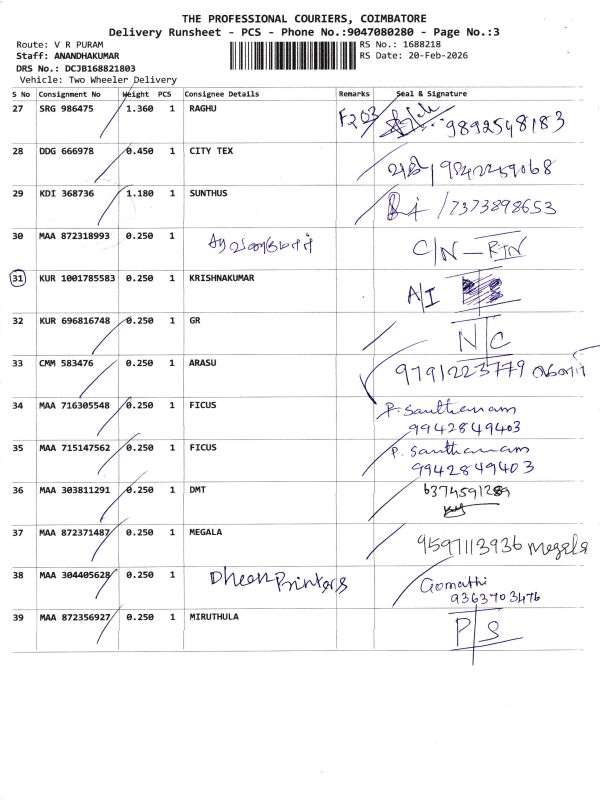 THE PROFESSIONAL COURIERS, COIMBATORE
Delivery Runsheet - PCS - Phone No.:9047080280 - Page No.:3
Route: V R PURAM
RS No.: 1688218
Staff: ANANDHAKUMAR
RS Date: 20-Feb-2026
DRS No.: DCJB168821803
Vehicle: Two Wheeler Delivery
S No Consignment No Weight PCS Consignee Details Remarks Seal & Signature
27 SRG 986475 1.360 1 RAGHU F203 9892548183
28 DDG 666978 0.450 1 CITY TEX 9842259068
29 KDI 368736 1.180 1 SUNTHUS 7373898653
30 MAA 872318993 0.250 1 C/N - RTN
31 KUR 1001785583 0.250 1 KRISHNAKUMAR A/I
32 KUR 696816748 0.250 1 GR N/C
33 CMM 583476 0.250 1 ARASU 9791223779
34 MAA 716305548 0.250 1 FICUS P. Santhanam
9942849403
35 MAA 715147562 0.250 1 FICUS P. Santhanam
9942849403
36 MAA 303811291 0.250 1 DMT 6374591289
37 MAA 872371487 0.250 1 MEGALA 9597113936 Megala
38 MAA 304405628 0.250 1 Dheen Printers Gomathi
9363703476
39 MAA 872356927 0.250 1 MIRUTHULA P/S